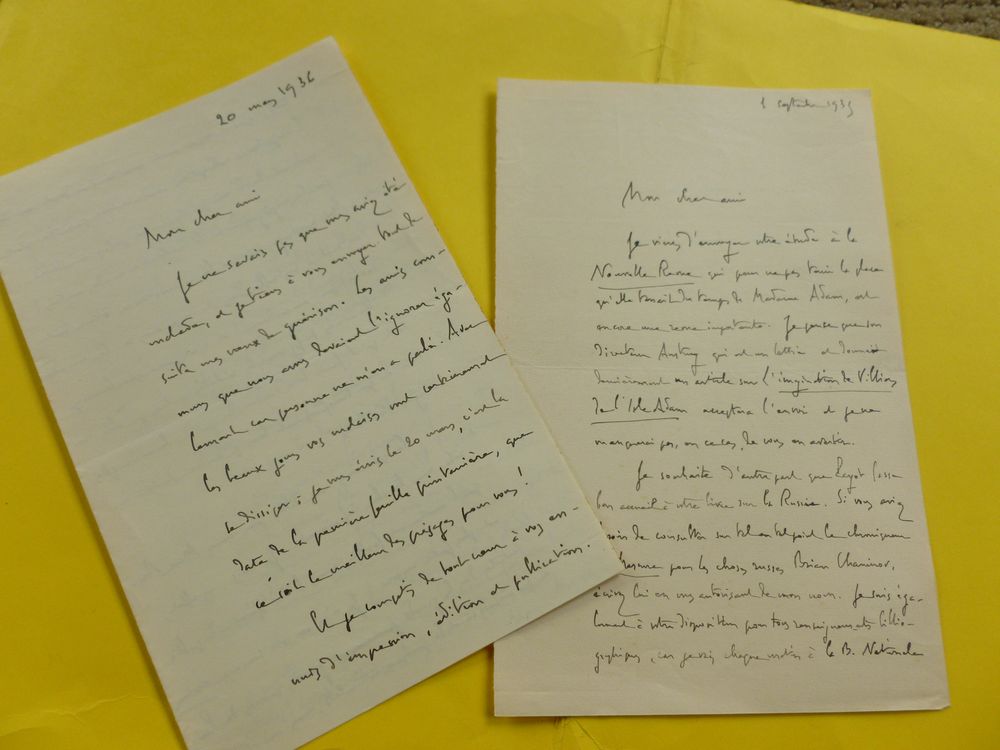 20 mars 1936
Mon cher ami
Je ne savais pas que vous aviez été
malade, et je tiens à vous envoyer tout de
suite mes vœux de guérison. Les amis com-
muns que nous avons devaient l'ignorer éga-
lement car personne ne m'en a parlé. Avec
les beaux jours vos malaises vont certainement
se dissiper : je vous écris le 20 mars, c'est la
date de la première feuille printanière, que
ce soit le meilleur des présages pour vous !
Et je compatis de tout cœur à vos en-
nuis d'impression, édition et publication.
1 septembre 1935
Mon cher ami
Je viens d'envoyer votre étude à la
Nouvelle Revue qui pour ne pas tenir la place
qu'elle tenait du temps de Madame Adam, est
encore une revue importante. Je pense que son
directeur qui est un lettré et donnait
dernièrement un article sur l'imagination de Villiers
de l'Isle Adam acceptera l'envoi et je ne
manquerai pas, en ce cas, de vous en avertir.
Je souhaite d'autre part que fasse
bon accueil à votre livre sur la Russie. Si vous aviez
besoin de consulter sur tel ou tel point le chroniqueur
du Mercure pour les choses russes Brian Chaninov,
écrivez lui en vous autorisant de mon nom. Je suis éga-
lement à votre disposition pour tous renseignements biblio-
graphiques, car je vais chaque matin à la B. Nationale